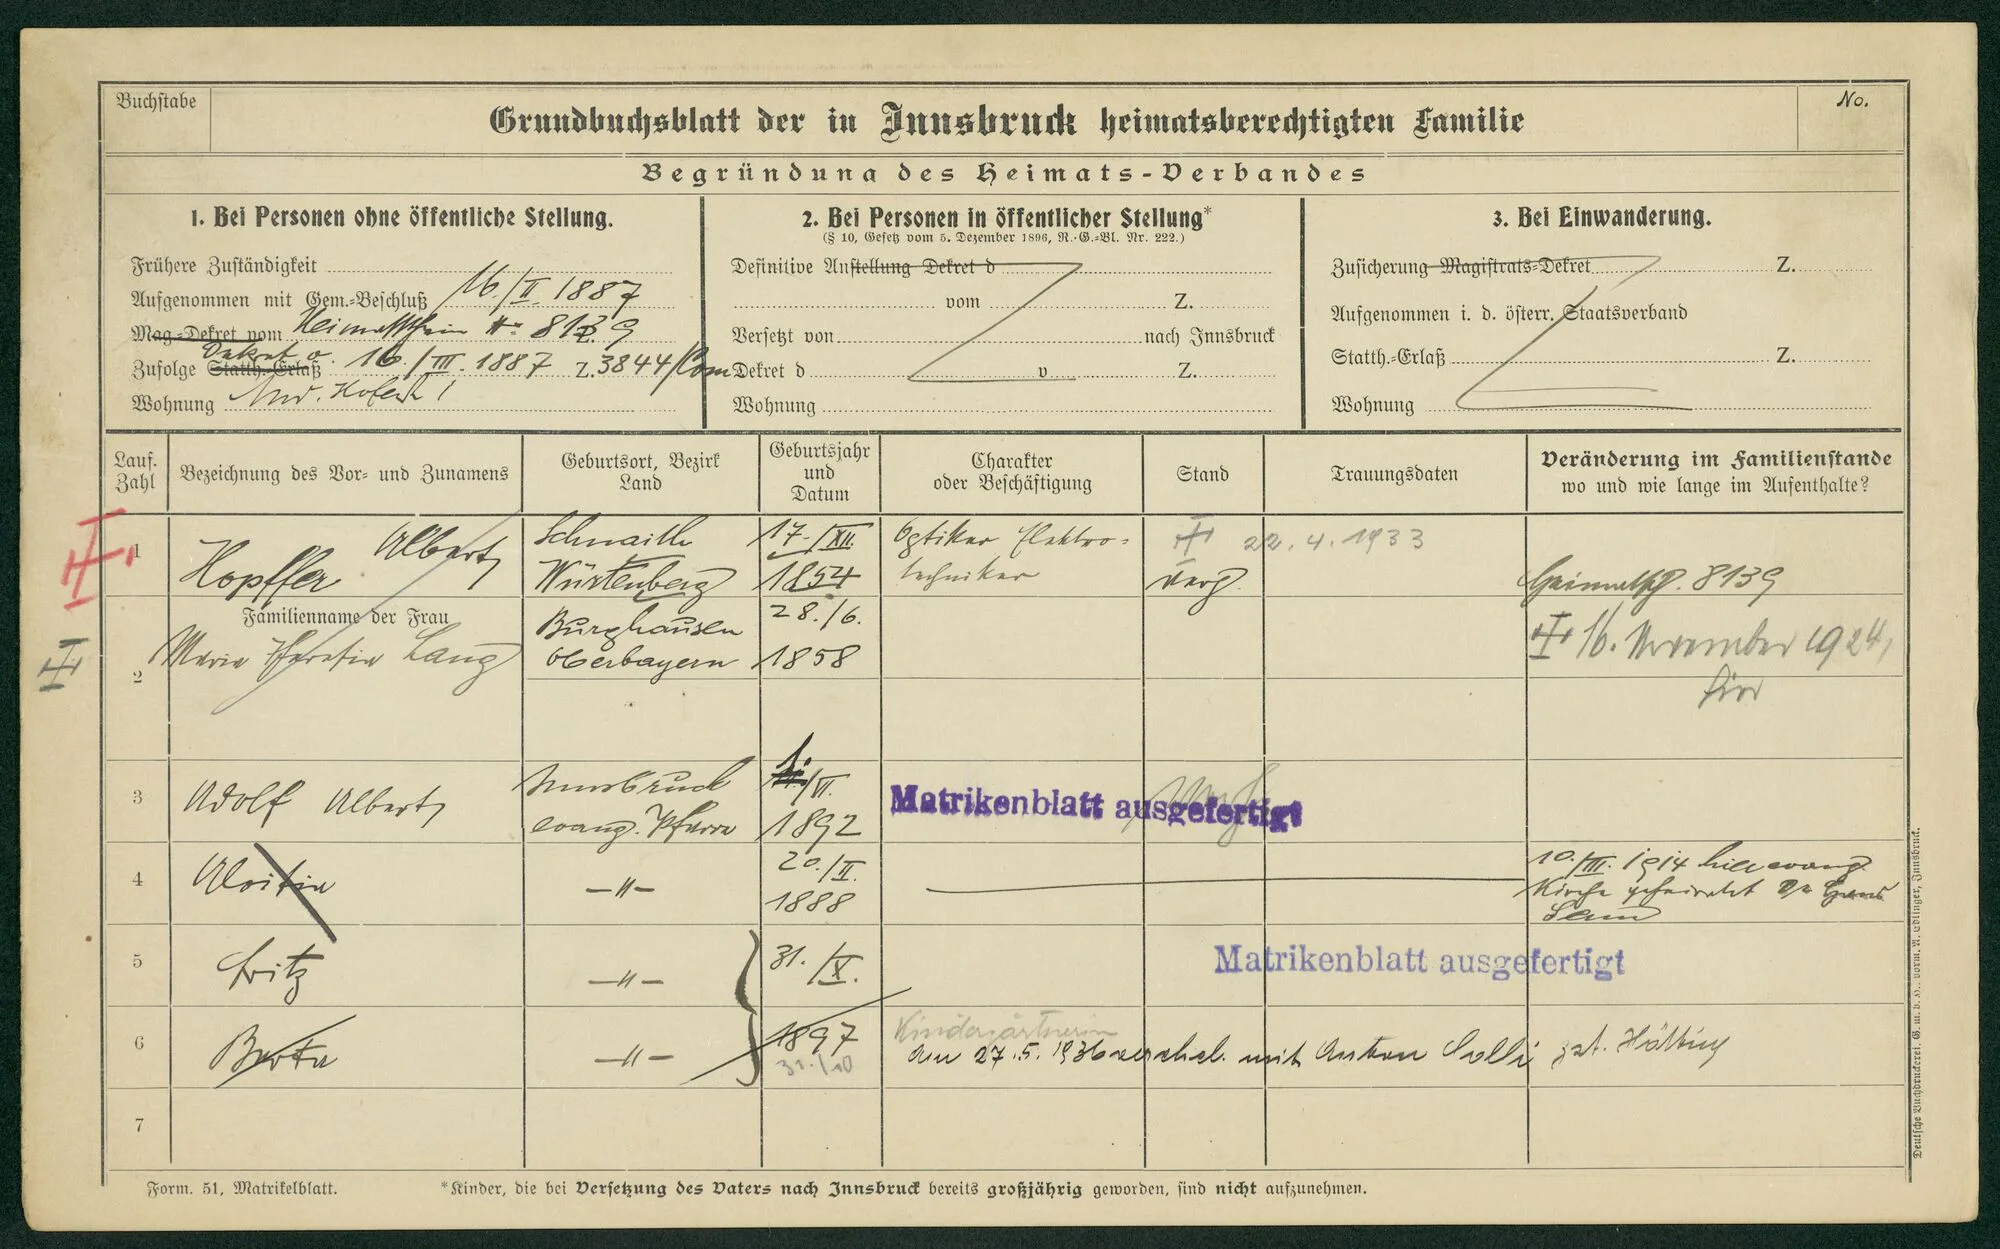 Buchstabe
Grundbuchsblatt der in Innsbruck heimatsberechtigten Familie
No.
Begründung des Heimats-Verbandes
1. Bei Personen ohne öffentliche Stellung.
Frühere Zuständigkeit
Aufgenommen mit Gem.-Beschluß 16./II. 1887
Mag-Dekret vom Heimatschein No 8139
Dekret v.
Zufolge Statth.-Erlaß 16./III. 1887 Z. 3844/Com
Wohnung And. Hoferst 1
2. Bei Personen in öffentlicher Stellung*
(§ 10, Gesetz vom 5. Dezember 1896, R.-G.-Bl. Nr. 222.)
Definitive Anstellung Dekret d
vom Z.
Versetzt von nach Innsbruck
Dekret d v Z.
Wohnung
3. Bei Einwanderung.
Zusicherung Magistrats-Dekret Z.
Aufgenommen i. d. österr. Staatsverband
Statth.-Erlaß Z.
Wohnung
Lauf. Zahl
Bezeichnung des Vor- und Zunamens
Geburtsort, Bezirk Land
Geburtsjahr und Datum
Charakter oder Beschäftigung
Stand
Trauungsdaten
Veränderung im Familienstande
wo und wie lange im Aufenthalte?
1 Hopffer Albert Schnaith Würtenberg 17./XII. 1854 Optiker Elektro-
techniker verh. 22.4.1933 Heimatsch. 8139
Familienname der Frau
2 Maria Lang Burghausen Oberbayern 28./6. 1858 16. November 1924,
hier
3 Adolf Albert Innsbruck evang. Pfarre /VI. 1892 Matrikenblatt ausgefertigt
4 —"— 20./II. 1888 10./III. 1914 hier evang.
Kirche geheiratet Dr
5 Fritz —"— 31./X. Matrikenblatt ausgefertigt
6 Berta —"— 1897 31./10 Kindergärtnerin
am 27.5.1936 verehel. mit Anton zst. Hötting
7
Form. 51, Matrikelblatt.
*Kinder, die bei Versetzung des Vaters nach Innsbruck bereits großjährig geworden, sind nicht aufzunehmen.
Deutsche Buchdruckerei, G. m. b. H., vorm. A. Edlinger, Innsbruck.